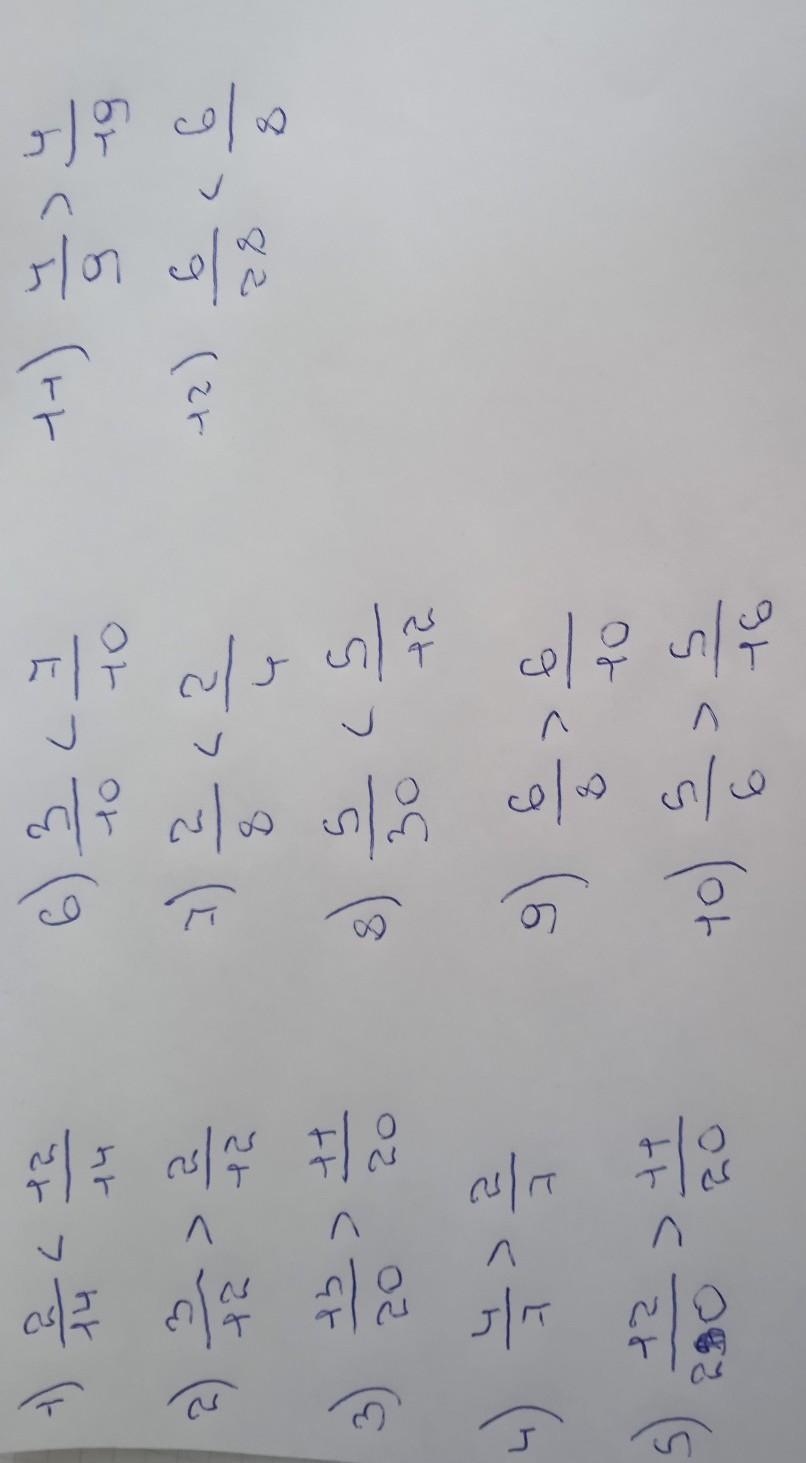 1) 2/14 < 12/14
2) 3/12 > 2/12
3) 15/20 > 11/20
4) 4/7 > 2/7
5) 12/20 > 11/20
6) 3/10 < 7/10
7) 2/8 < 2/4
8) 5/30 < 5/12
9) 6/8 > 6/10
10) 5/6 > 5/16
11) 4/9 > 4/19
12) 6/28 < 6/8